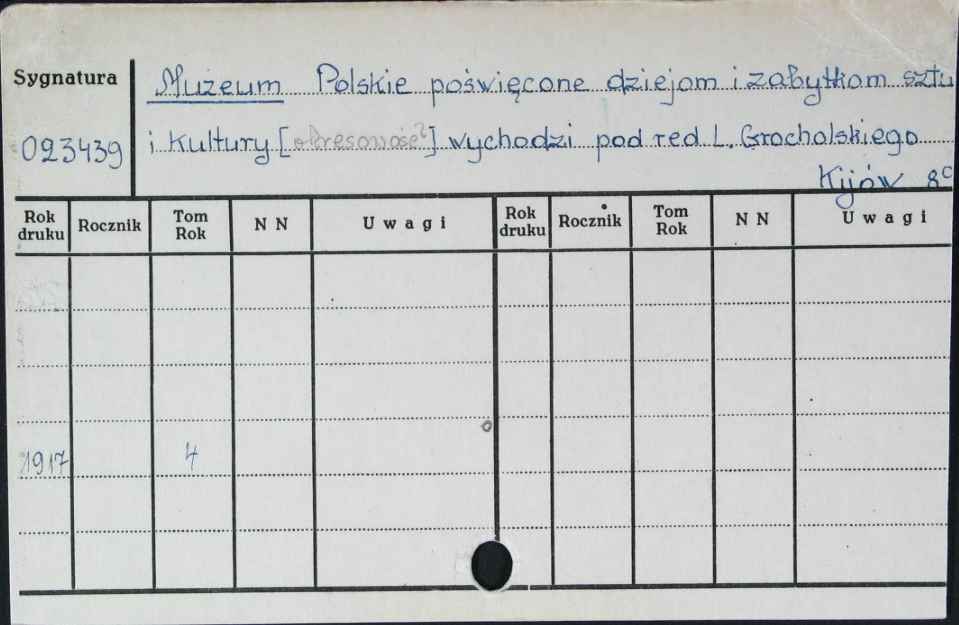 Sygnatura
023439
Muzeum Polskie poświęcone dziejom i zabytkom sztu
i Kultury [okresowość?] wychodzi pod red L. Grocholskiego
Kijów 8°
Rok druku Rocznik Tom Rok N N Uwagi Rok druku Rocznik Tom Rok N N Uwagi
1917 4